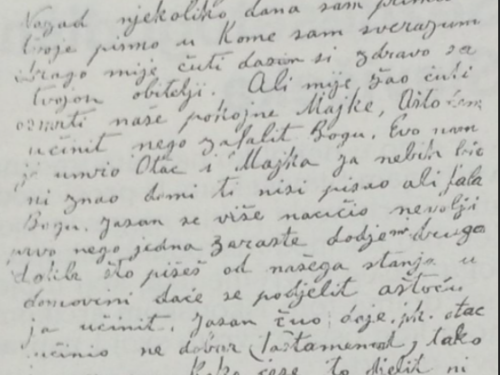 Nazad njekoliko dana sam primio
tvoje pismo u kome sam sverazumi
drago mije čuti dasam si zdravo sa
tvojon obitelji. Ali mije žao čuti
osmrti naše pokojne Majke, Ašto ćem
učinit nego zafalit Bogu. Evo
je umrio Otac i Majka ja nebih bio
ni znao dami ti nisi pisao ali fala
Bogu. Jasan se više naučio nevolji
prvo nego jedna zaraste dodje druga
dakle što pišeš od našega stanja u
domovini daće se podjelit aštoću
ja učinit. Jasan čuo daje pk. otac
učinio ne dobar Taštamenat, tako
kako ćese to dielit ni